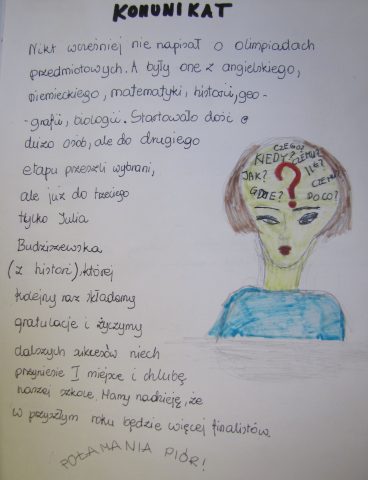 KOMUNIKAT
Nikt wcześniej nie napisał o olimpiadach
przedmiotowych. A były one z angielskiego,
niemieckiego, matematyki, historii, geo-
-grafii, biologii. Startowało dość
dużo osób, ale do drugiego
etapu przeszli wybrani,
ale już do trzeciego
tylko Julia
Budziszewska
(z historii), której
kolejny raz składamy
gratulacje i życzymy
dalszych sukcesów niech
przyniesie I miejsce i chlubę
naszej szkole. Mamy nadzieję, że
w przyszłym roku będzie więcej finalistów.
POŁAMANIA PIÓR!
CZEGO?
KIEDY? CZEMU?
JAK? ? ILE?
GDZIE? CZEMU?
PO CO?